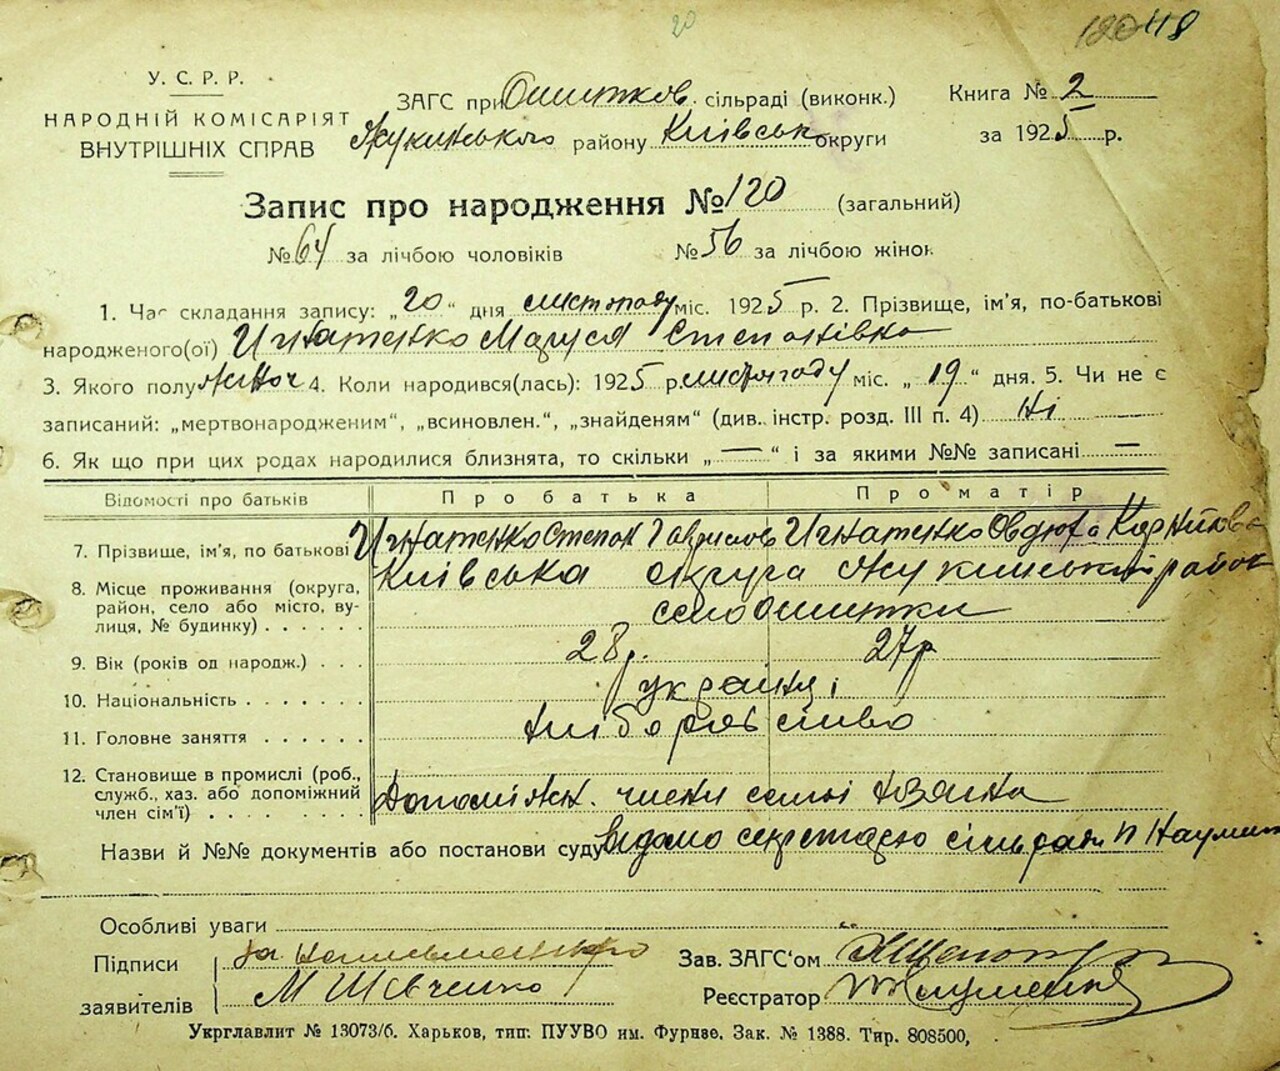 20
120 118
У. С. Р. Р.
НАРОДНІЙ КОМІСАРІЯТ
ВНУТРІШНІХ СПРАВ
ЗАГС при Ошитков. сільраді (виконк.)
Жукинського району Київськ округи
Книга № 2
за 1925 р.
Запис про народження № 120 (загальний)
№ 64 за лічбою чоловіків № 56 за лічбою жінок
1. Час складання запису: „20“ дня листопаду міс. 1925 р. 2. Прізвище, ім'я, по-батькові
народженого(ої) Игнатенко Маруся Степанівна
3. Якого полу жіноч 4. Коли народився(лась): 1925 р. листопаду міс. „19“ дня. 5. Чи не є
записаний: „мертвонародженим“, „всиновлен.“, „знайденям“ (див. інстр. розд. III п. 4) Ні
6. Як що при цих родах народилися близнята, то скільки „—“ і за якими №№ записані —
Відомості про батьків Про батька Про матір
7. Прізвище, ім'я, по батькові Игнатенко Степан Гаврилов Игнатенко Овдюха
8. Місце проживання (округа, Київська округа Жукинський район
район, село або місто, ву- село Ошитки
лиця, № будинку) . . . . . .
9. Вік (років од народж.) . . . 28 р. 27 р
10. Національність . . . . . . . українці
11. Головне заняття . . . . . . хліборобство
12. Становище в промислі (роб.,
служб., хаз. або допоміжний Допоміжн. члени семьі
член сім'ї) . . . . . . . .
Назви й №№ документів або постанови суду відомо секретарю сільради П Наумен
Особливі уваги
Підписи за
заявителів М Шевченко
Зав. ЗАГС'ом
Реєстратор Науменко
Укрглавліт № 13073/б. Харьков, тип. ПУУВО им. Фрунзе. Зак. № 1388. Тир. 808500,